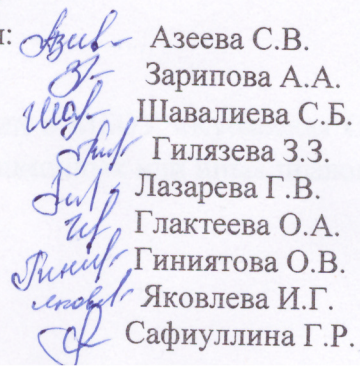 Азеева С.В.
Зарипова А.А.
Шавалиева С.Б.
Гилязева З.З.
Лазарева Г.В.
Глактеева О.А.
Гиниятова О.В.
Яковлева И.Г.
Сафиуллина Г.Р.